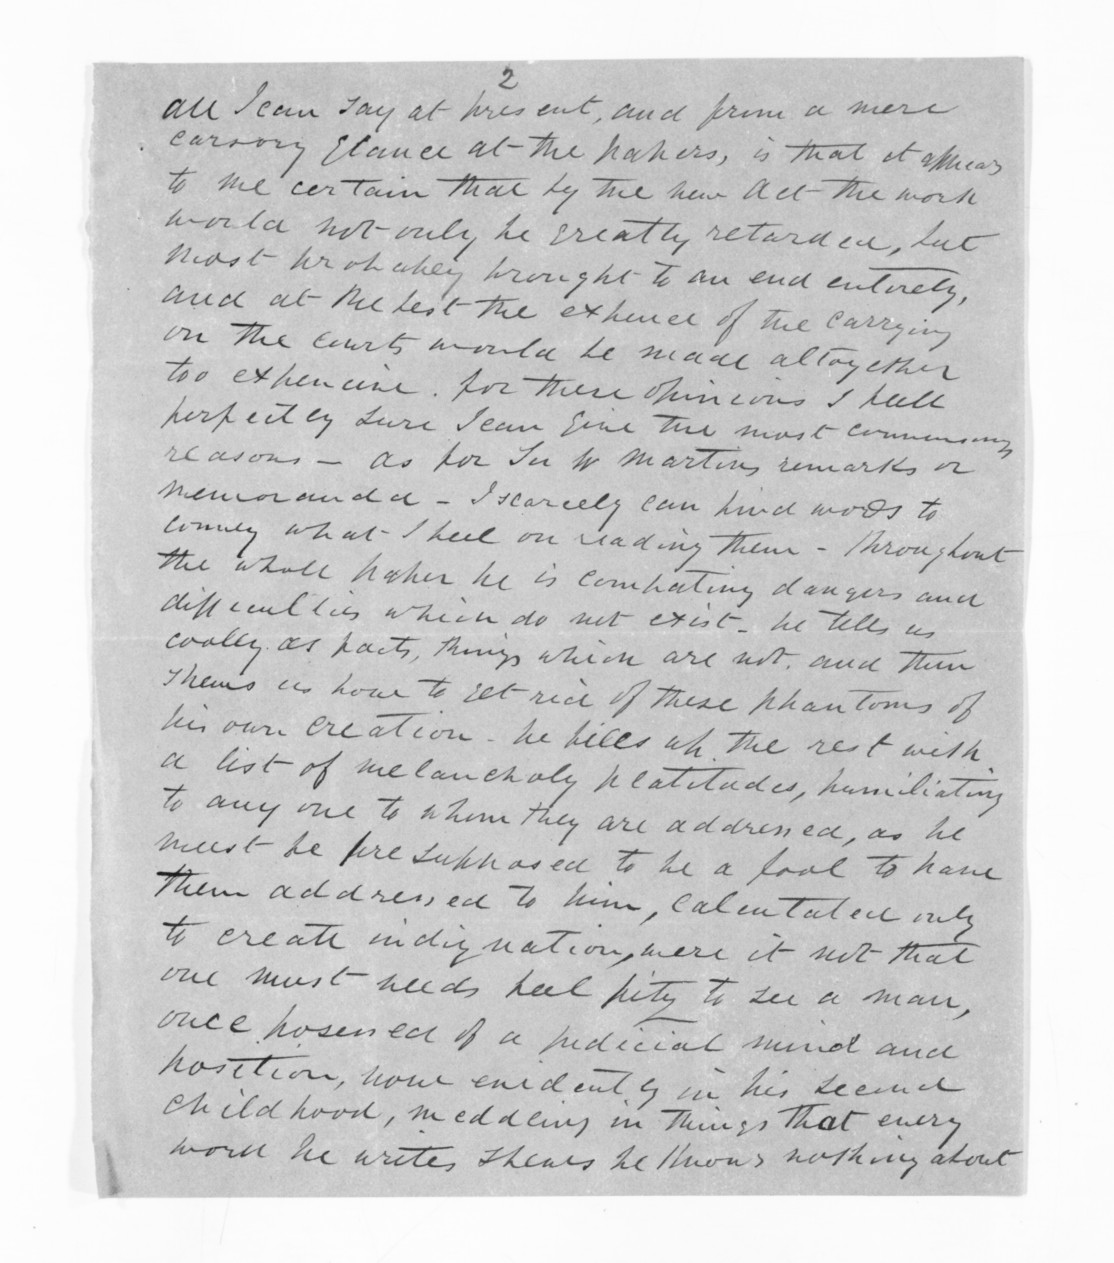 2
all I can say at present, and from a mere
carsory glance at the papers, is that it appears
to me certain that by the new Act the work
would not only be greatly retarded, but
most probabley brought to an end entirely,
and at the best the expence of the carrying
on the courts would be made altogether
too expencive. for these opinions I feel
perfectly sure I can give the most convincing
reasons - as for Sir W Martins remarks or
memoranda - I scarcely can find words to
convey what I feel on reading them - throughout
the whole paper he is combating dangers and
difficulties which do not exist - he tells us
coolly as facts, things which are not. and then
shews us how to get rid of these phantoms of
his own creation - he fills up the rest with
a list of melancholy platitudes, humiliating
to any one to whom they are addressed, as he
must be presupposed to be a fool to have
them addressed to him, calculated only
to create indignation, were it not that
one must needs feel pity to see a man,
once posessed of a judicial mind and
position, now evidently in his second
childhood, meddling in things that every
word he writes shews he knows nothing about